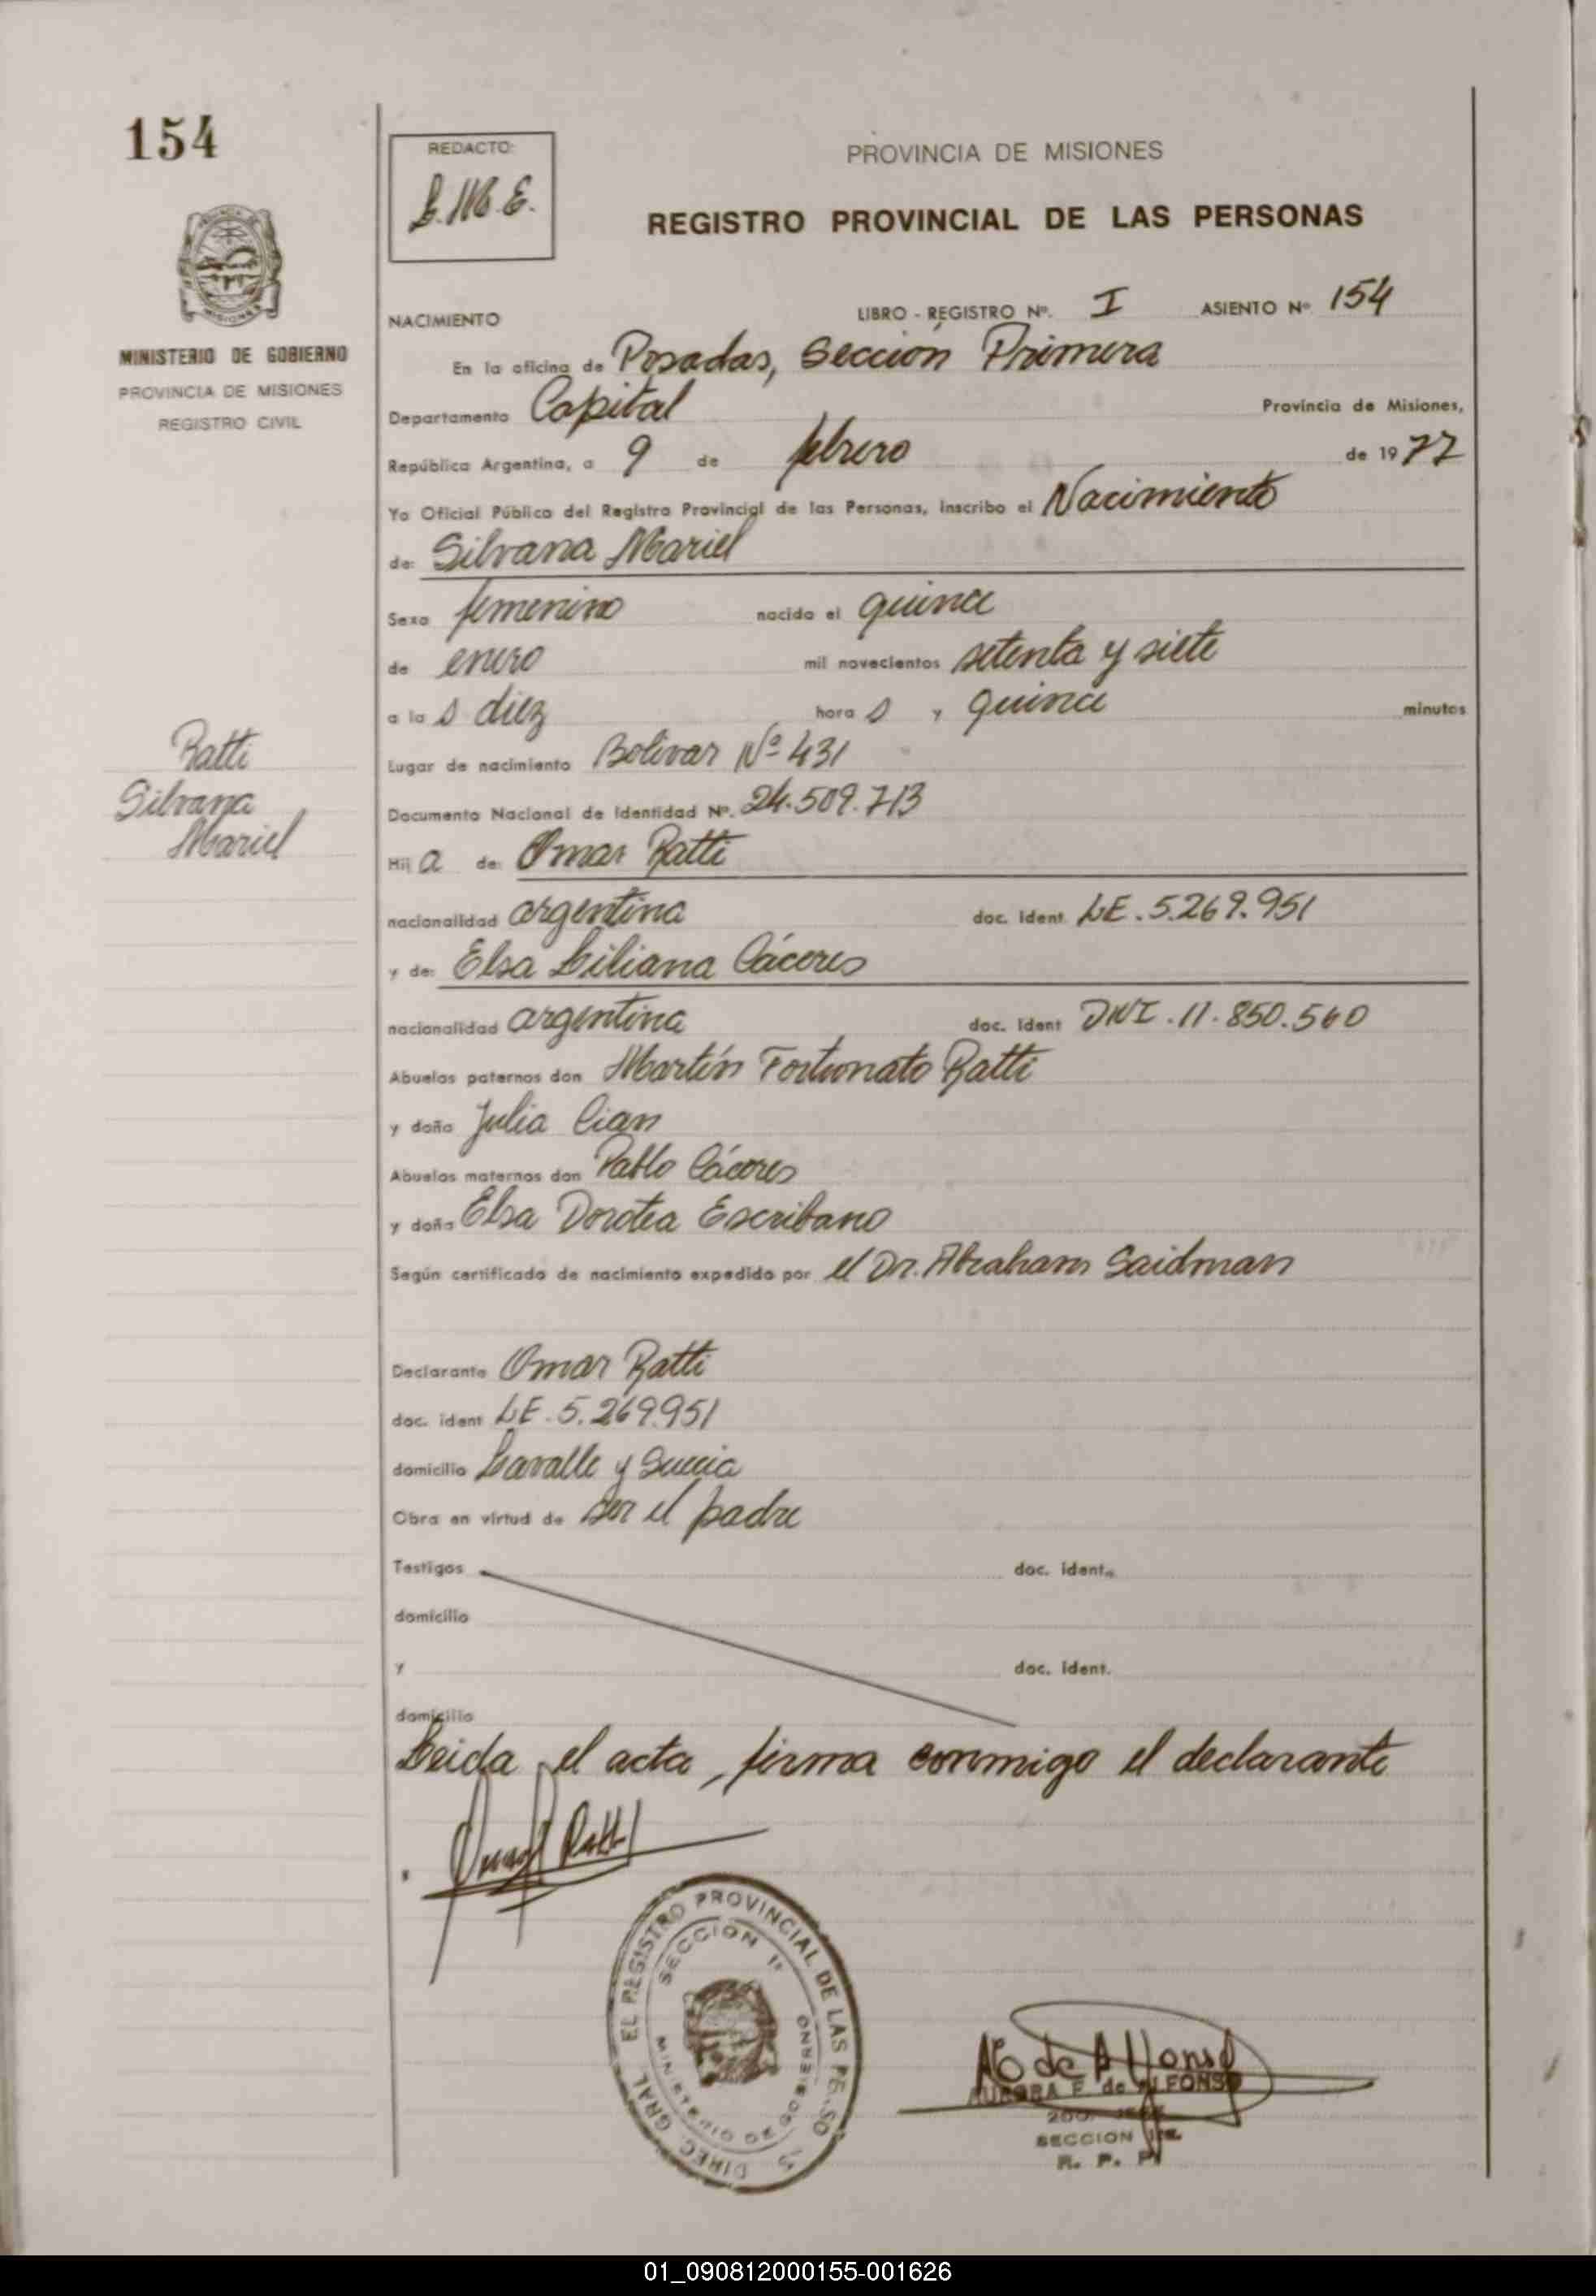 154
REDACTO:
L.M.E.
PROVINCIA DE MISIONES
REGISTRO PROVINCIAL DE LAS PERSONAS
MINISTERIO DE GOBIERNO
PROVINCIA DE MISIONES
REGISTRO CIVIL
NACIMIENTO LIBRO - REGISTRO Nº. I ASIENTO Nº 154
En la oficina de Posadas, Sección Primera
Departamento Capital Provincia de Misiones,
República Argentina, a 9 de febrero de 1977
Yo Oficial Público del Registro Provincial de las Personas, inscribo el Nacimiento
de: Silvana Mariel
Sexo femenino nacido el quince
de enero mil novecientos setenta y siete
a las diez horas y quince minutos
Ratti
Silvana
Mariel
Lugar de nacimiento Bolívar Nº 431
Documento Nacional de Identidad Nº. 24.509.713
Hija de: Omar Ratti
nacionalidad argentina doc. ident LE. 5.269.951
y de: Elsa Liliana Cáceres
nacionalidad argentina doc. ident DNI. 11.850.560
Abuelos paternos don Martín Fortunato Ratti
y doña Julia Cian
Abuelos maternos don Pablo Cáceres
y doña Elsa Dorotea Escribano
Según certificado de nacimiento expedido por el Dr. Abraham Saidman
Declarante Omar Ratti
doc. ident LE. 5.269.951
domicilio Lavalle y Suecia
Obra en virtud de ser el padre
Testigos doc. ident.
domicilio
y doc. ident.
domicilio
Leída el acta, firma conmigo el declarante
Omar Ratti
DIREC. GRAL. EL REGISTRO PROVINCIAL DE LAS
SECCION 1ª
MINISTERIO DE GOBIERNO
A de Alfonso
AURORA F. de ALFONSO
2DO. JEFE
SECCION 1ra.
R. P. P.
01_090812000155-001626